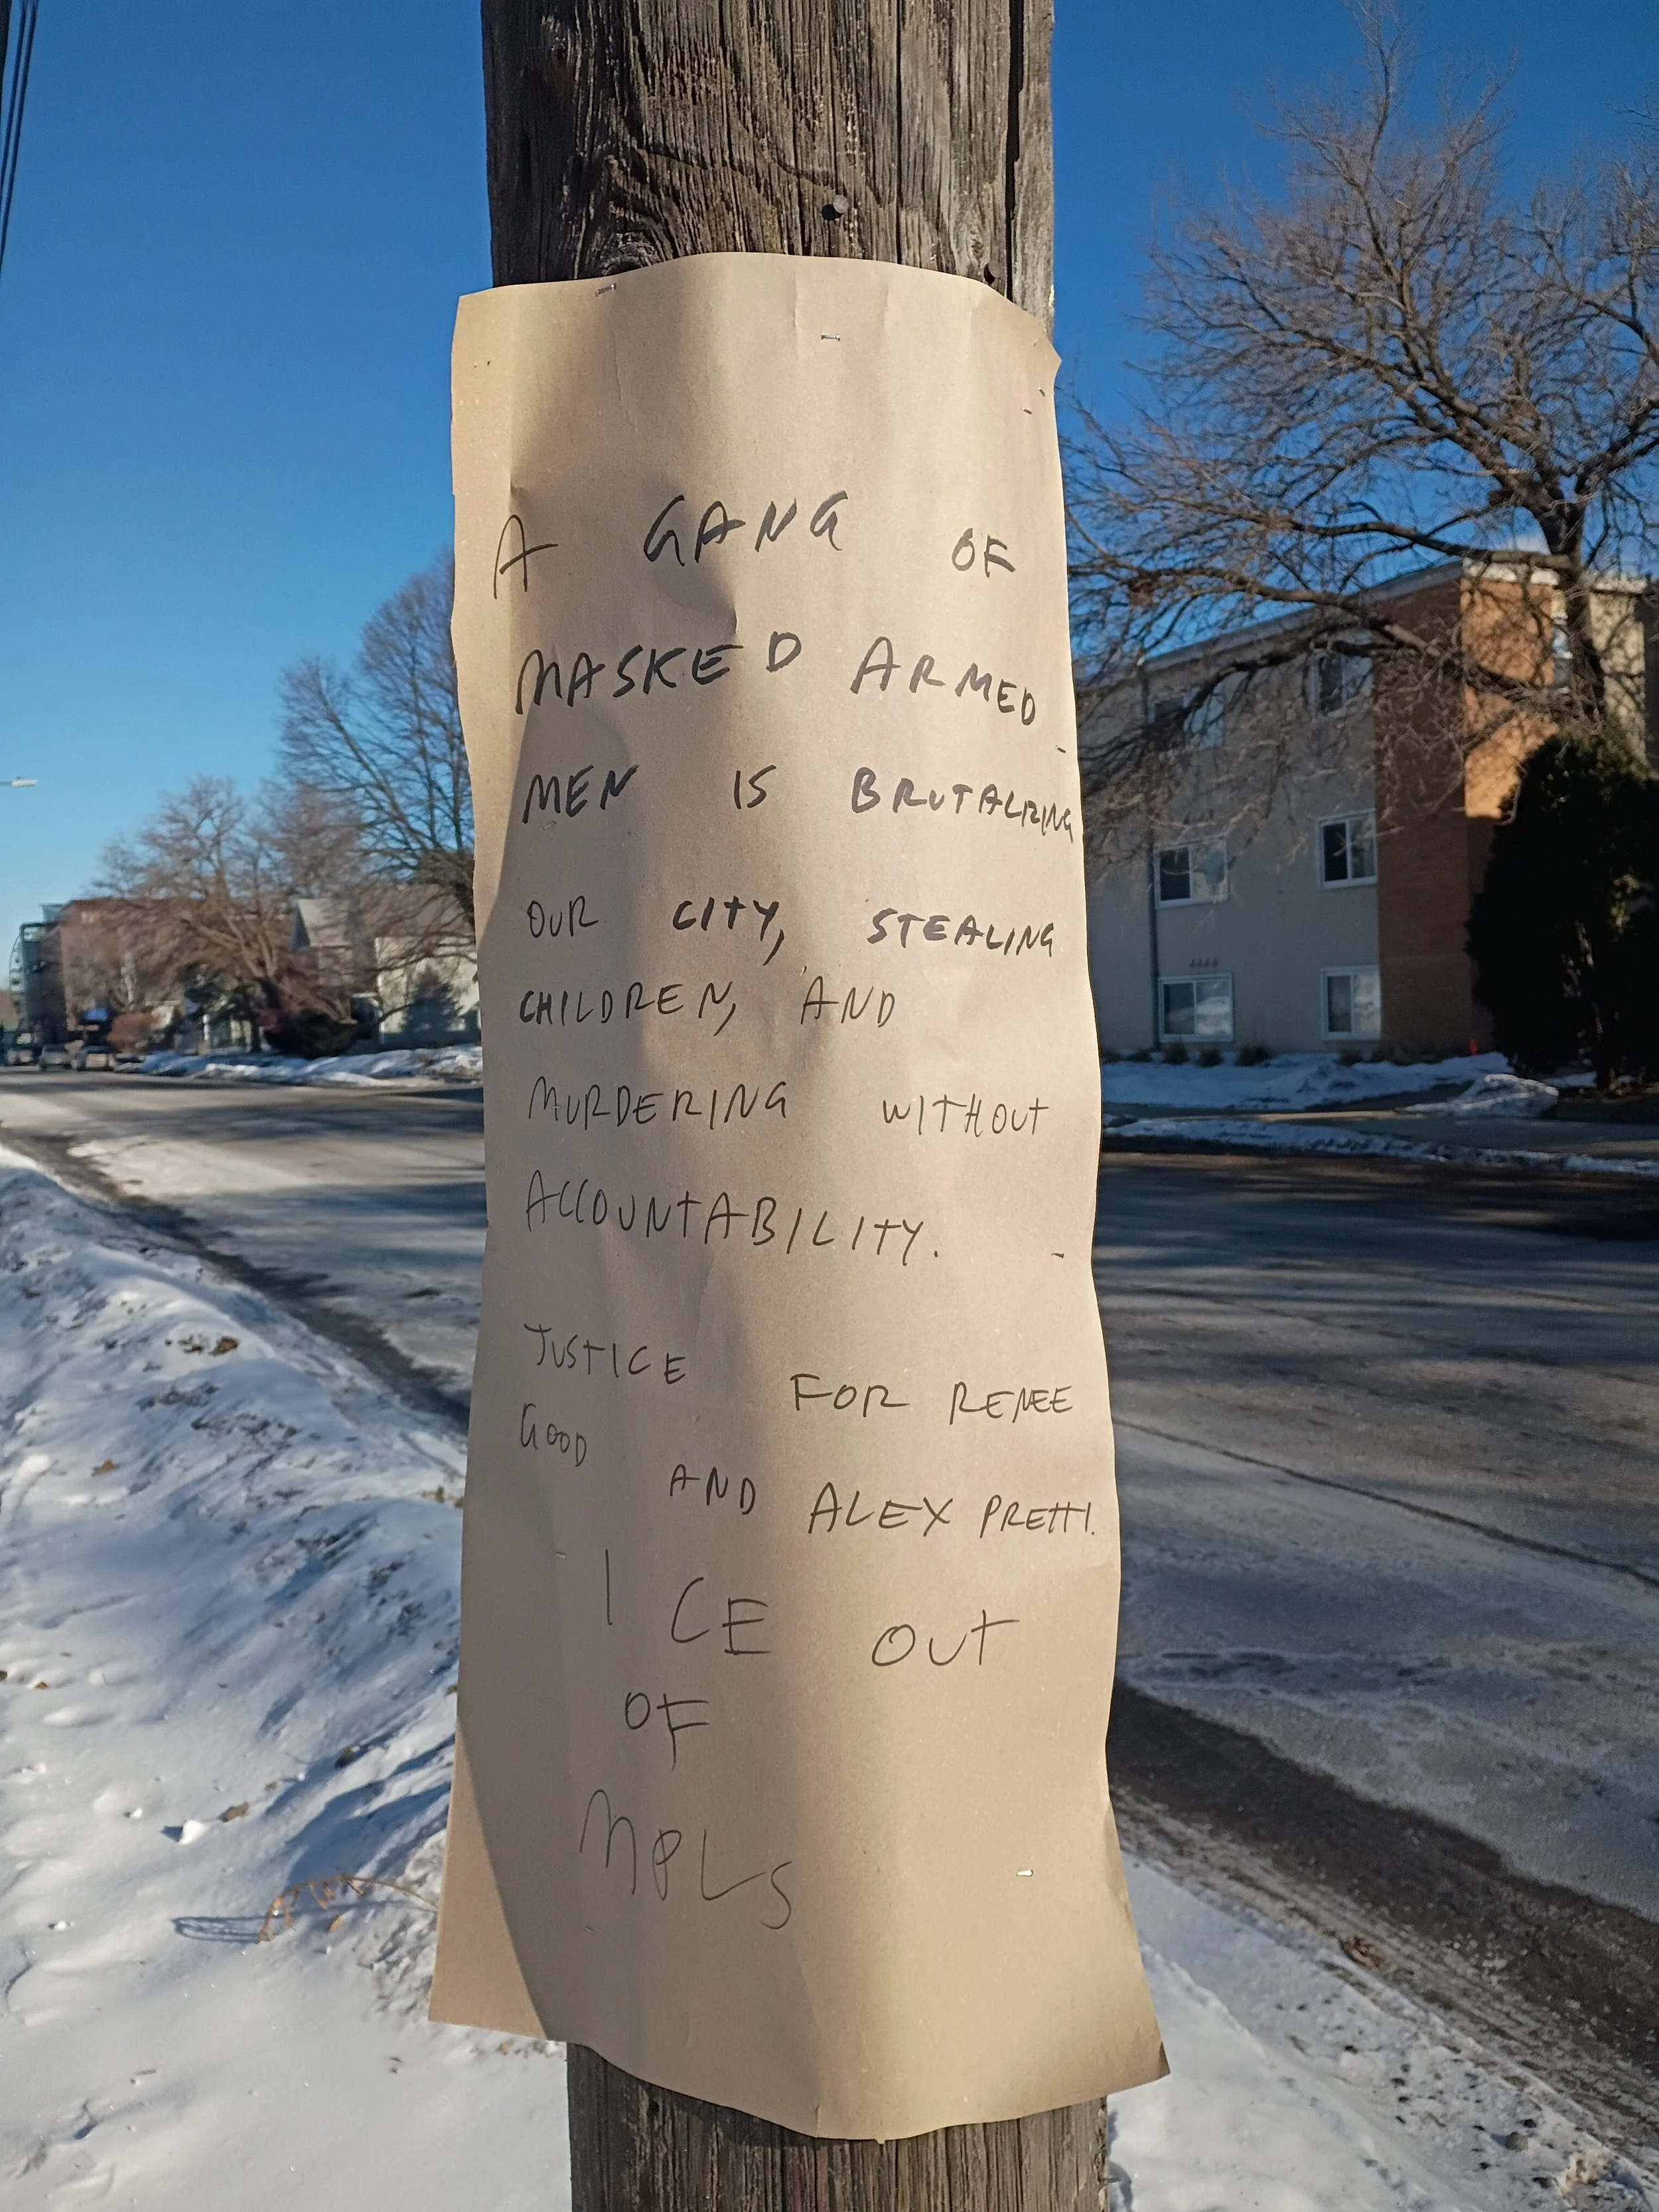 A GANG OF
MASKED ARMED
MEN IS BRUTALIZING
OUR CITY, STEALING
CHILDREN, AND
MURDERING WITHOUT
ACCOUNTABILITY.
JUSTICE FOR RENEE
GOOD AND ALEX PRETTI.
ICE OUT
OF
MPLS